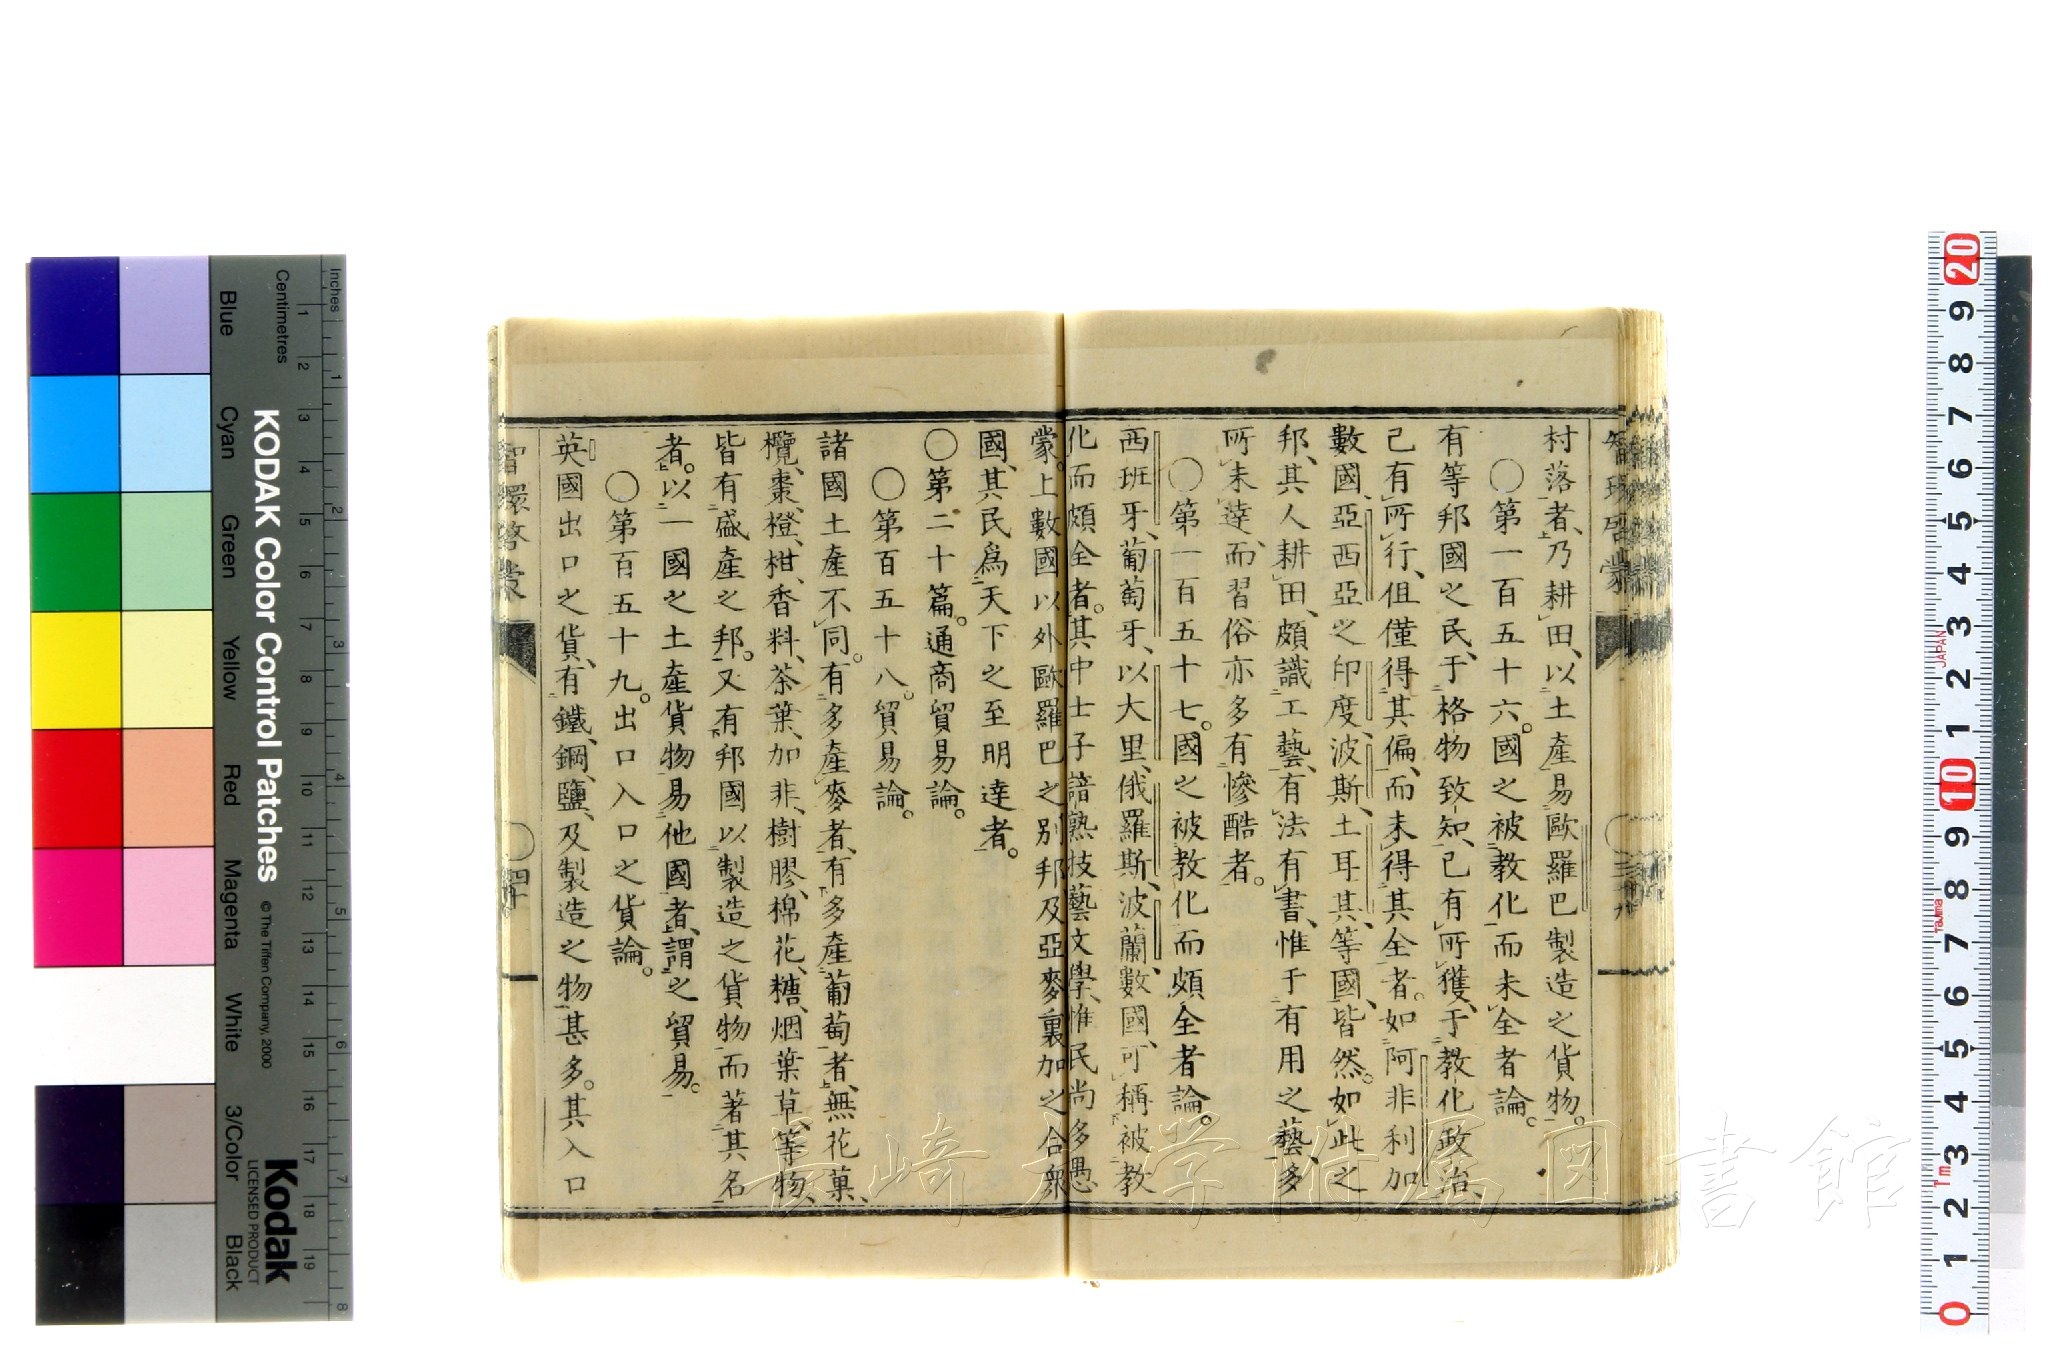 村落者、乃耕田、以土產易歐羅巴製造之貨物。
○第一百五十六。國之被教化而未全者論。
有等邦國之民、于格物致知、已有所獲、于教化政治、
已有所行、但僅得其偏、而未得其全者。如阿非利加
數國、亞西亞之印度、波斯、土耳其、等國、皆然。如此之
邦、其人耕田、頗識工藝、有法有書、惟于有用之藝、多
所未達、而習俗亦多有慘酷者。
○第一百五十七。國之被教化而頗全者論。
西班牙、葡萄牙、以大里、俄羅斯、波蘭數國、可稱被教
化而頗全者。其中士子諳熟技藝文學、惟民尚多愚
蒙。上數國以外歐羅巴之別邦及亞麥裏加之合衆
國、其民爲天下之至明達者。
○第二十篇。通商貿易論。
○第百五十八。貿易論。
諸國土產不同。有多產麥者、有多產葡萄者、無花菓、
欖、棗、橙、柑、香料、茶葉、加非、樹膠、棉花、糖、烟葉草、等物、
皆有盛產之邦。又有邦國以製造之貨物而著其名
者。以一國之土產貨物易他國者、謂之貿易。
○第百五十九。出口入口之貨論。
英國出口之貨、有鐵、鋼、鹽、及製造之物甚多。其入口
智環啓蒙
四十
KODAK Color Control Patches
© The Tiffen Company, 2000
Kodak
LICENSED PRODUCT
Inches
Centimetres
Blue
Cyan
Green
Yellow
Red
Magenta
White
3/Color
Black
長崎大学附属図書館
JAPAN
Tajima